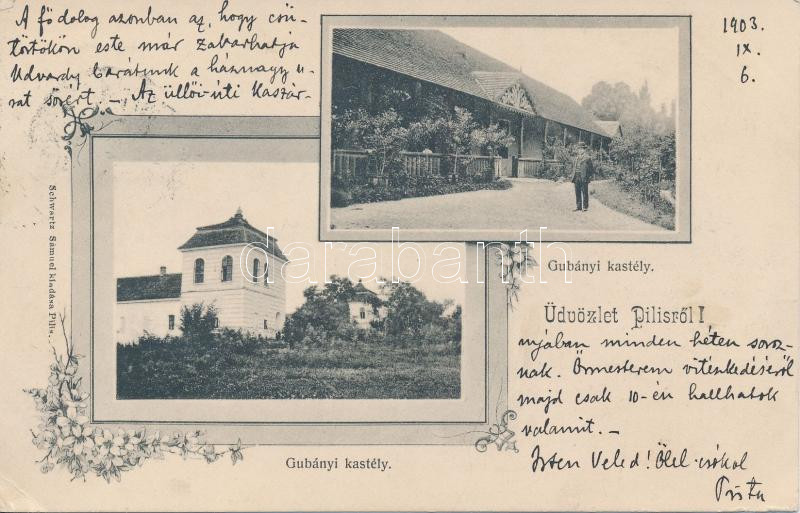 A fődolog azonban az, hogy csü-
törtökön este már zabarhatja
Udvardy barátunk a háznagy u-
rat sörért. – Az üllői-úti Kaszár-
1903.
IX.
6.
Schwartz Sámuel kiadása Pilis.
darabanth.com
Gubányi kastély.
Üdvözlet Pilisről!
nyjában minden héten soroz-
nak. Őrmesterem vitézkedéséről
majd csak 10-én hallhatok
valamit. –
Isten Veled! Ölel-csókol
Pista
Gubányi kastély.